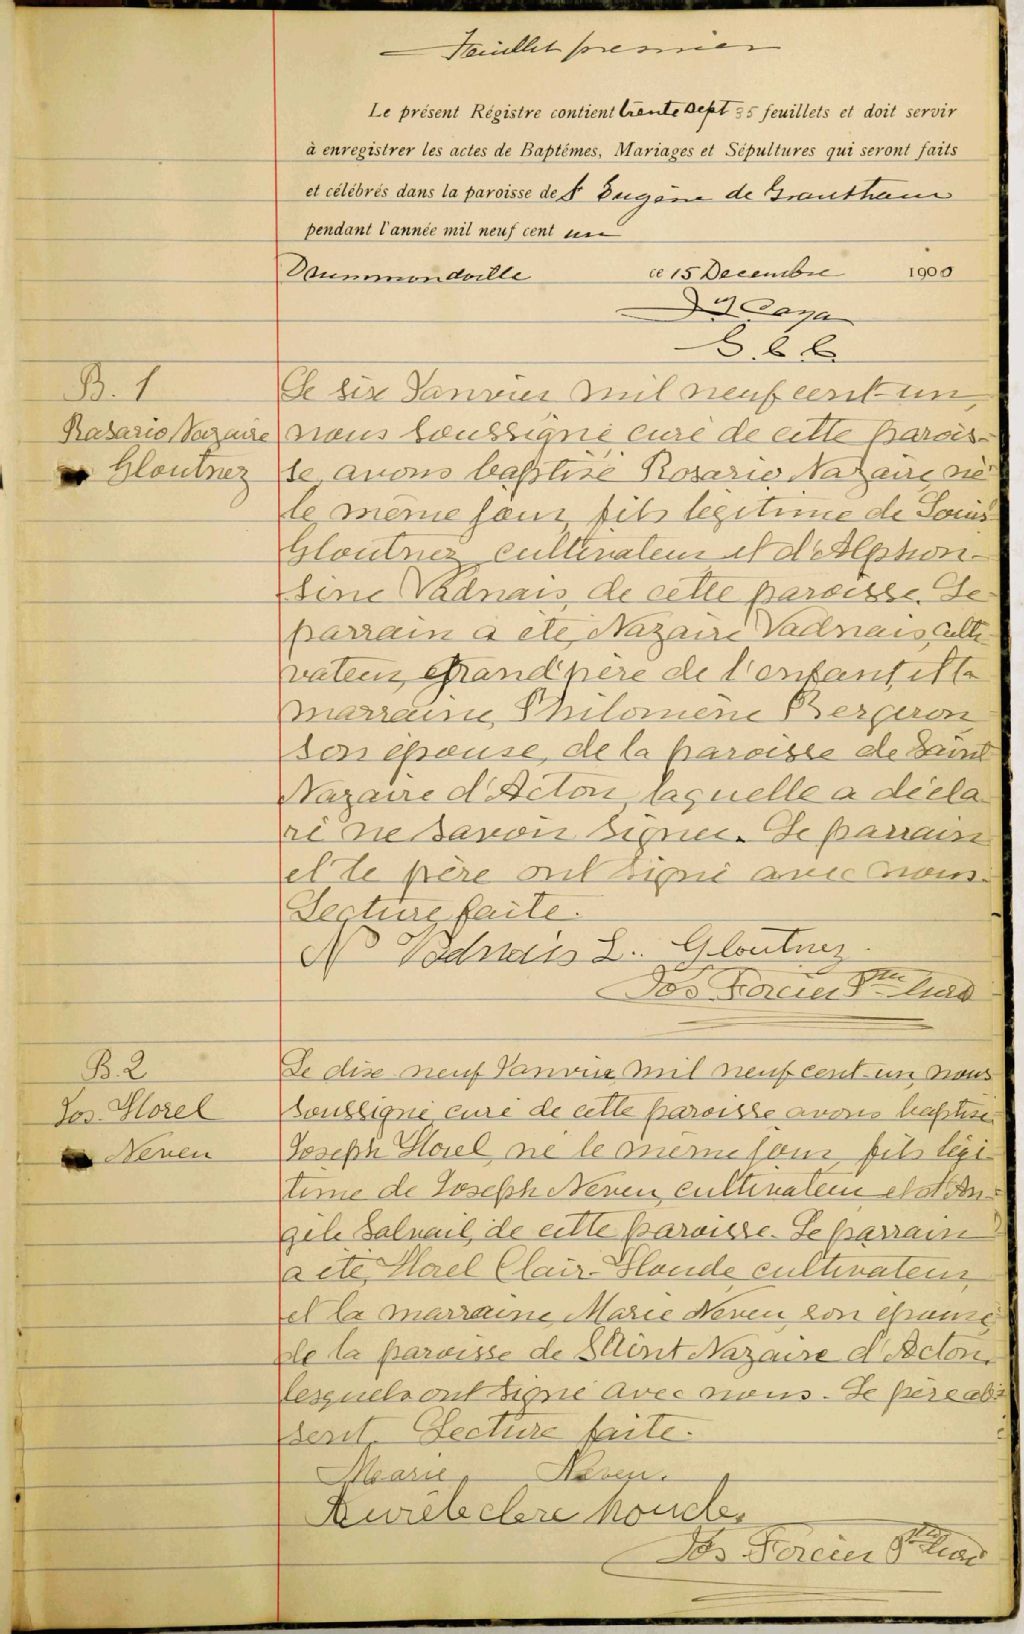 Feuillet premier
Le présent Régistre contient trente sept 35 feuillets et doit servir
à enregistrer les actes de Baptêmes, Mariages et Sépultures qui seront faits
et célébrés dans la paroisse de St Eugène de Grantham
pendant l'année mil neuf cent un
Drummondville ce 15 Decembre 1900
Caya
G. C. C.
B. 1
Rosario Nazaire
Gloutnez
Le six Janvier mil neuf cent-un,
nous soussigné, curé de cette parois-
se, avons baptisé Rosario Nazaire, né
le même jour, fils légitime de Louis
Gloutnez cultivateur et d'Alphon-
sine Vadnais, de cette paroisse. Le
parrain a été, Nazaire Vadnais, culti-
vateur, grand'père de l'enfant, et la
marraine, Philomène Bergeron,
son épouse, de la paroisse de Saint
Nazaire d'Acton, laquelle a décla-
ré ne savoir signer. Le parrain
et le père ont signé avec nous.
Lecture faite.
N Vadnais L. Gloutnez.
Jos. Forcier Ptre Curé
B. 2
Jos. Horel
Neveu
Le dix neuf Janvier, mil neuf cent-un, nous
soussigné, curé de cette paroisse avons baptisé
Joseph Horel, né le même jour, fils légi-
time de Joseph Neveu, cultivateur et d'An-
gèle Salvail, de cette paroisse. Le parrain
a été, Horel Clair-Houde, cultivateur,
et la marraine, Marie Neveu, son épouse,
de la paroisse de Saint Nazaire d'Acton,
lesquels ont signé avec nous. Le père ab-
sent. Lecture faite.
Marie Neveu.
houde.
Jos. Forcier Ptre Curé